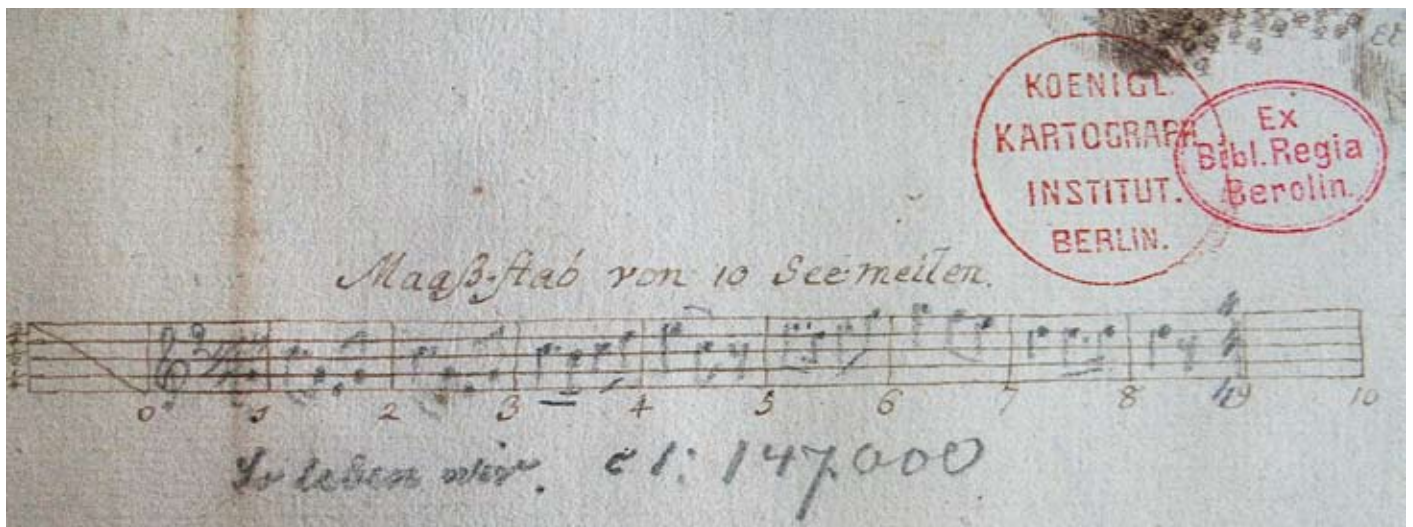 KOENIGL.
KARTOGRAPH.
INSTITUT.
BERLIN.
Ex
Bibl. Regia
Berolin.
Maaß-stab von 10 Seemeilen.
0 1 2 3 4 5 6 7 8 9 10
So leben wir. c 1: 147,000